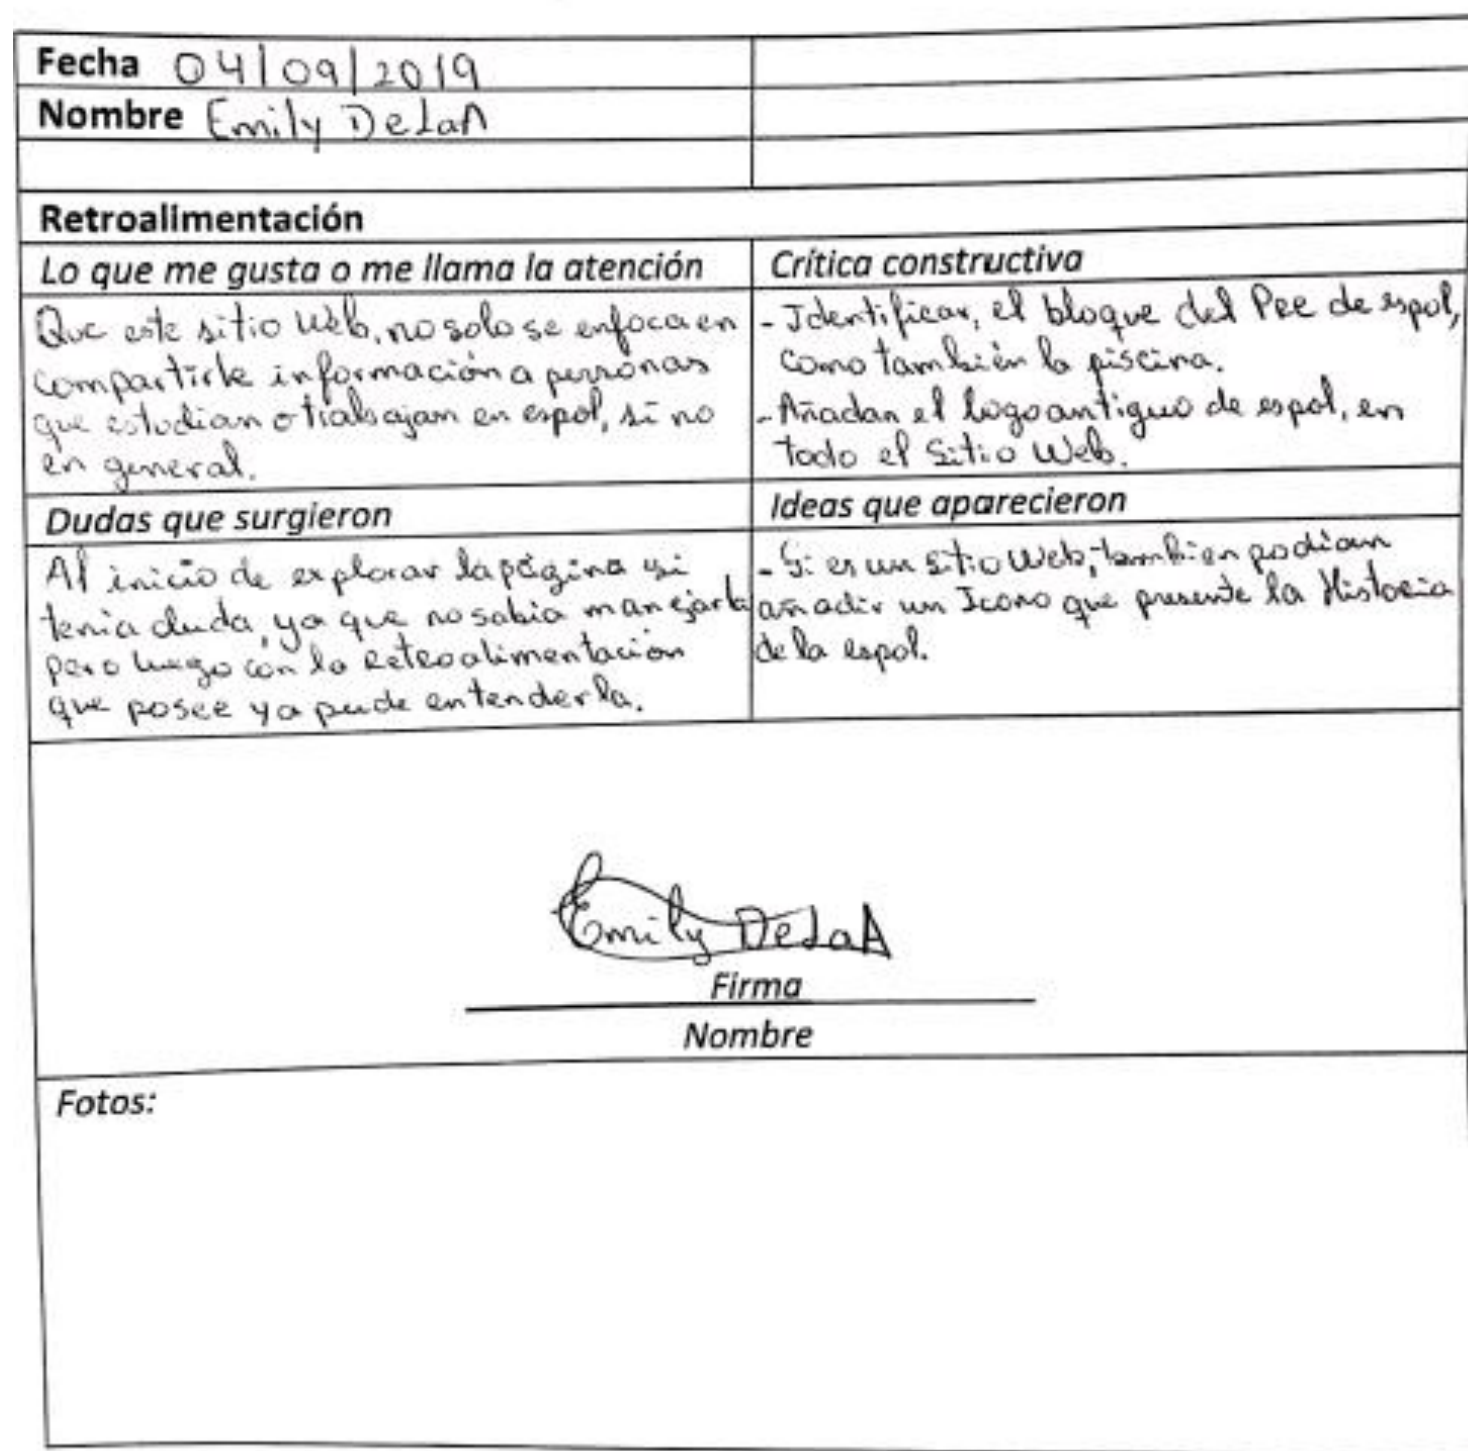 Fecha 04/09/2019
Nombre Emily DeLaA
Retroalimentación
Lo que me gusta o me llama la atención
Que este sitio Web, no solo se enfoca en
compartirle información a personas
que estudian o trabajan en espol, si no
en general.
Crítica constructiva
- Identificar, el bloque del Pre de espol,
como también la piscina.
- Añadan el logo antiguo de espol, en
todo el Sitio Web.
Dudas que surgieron
Al inicio de explorar la página si
tenia duda, ya que no sabia manejarla
pero luego con la retroalimentación
que posee ya pude entenderla.
Ideas que aparecieron
- Si es un sitio Web, tambien podian
añadir un Icono que presente la Historia
de la espol.
Emily DeLaA
Firma
Nombre
Fotos: